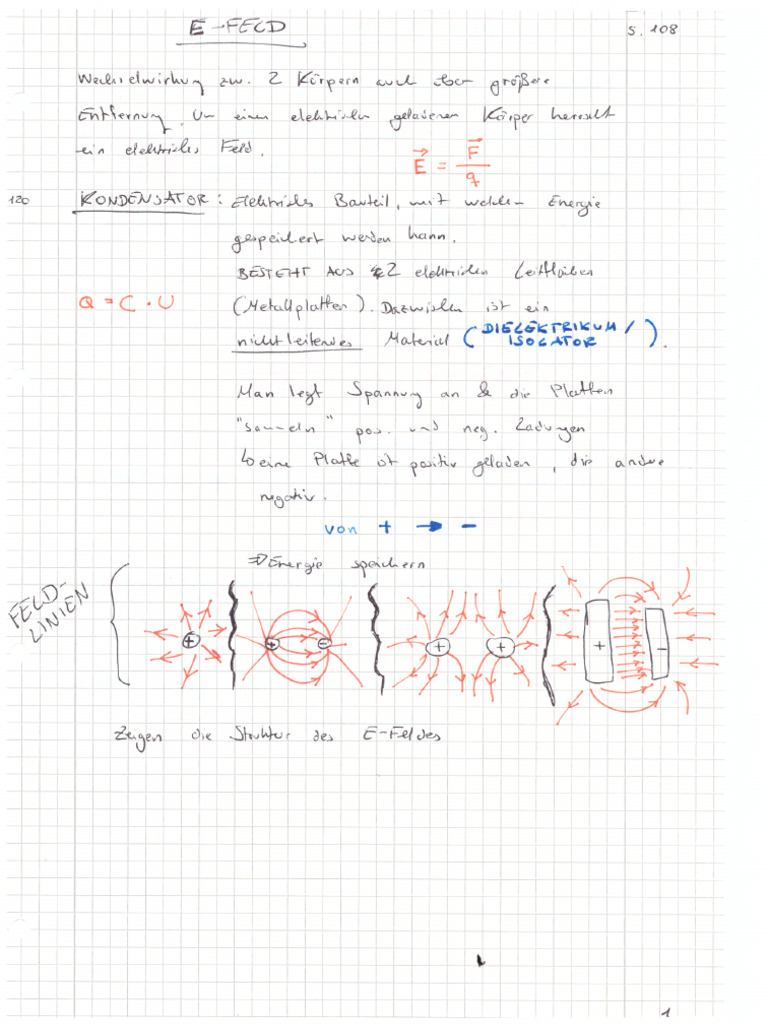 E-FELD
S. 108
Wechselwirkung zw. 2 Körpern auch über größere
Entfernung. Um einen elektrisch geladenen Körper herrscht
ein elektrisches Feld.
E = F / q
120
KONDENSATOR: Elektrisches Bauteil, mit welchem Energie
gespeichert werden kann.
BESTEHT AUS 2 elektrischen Leitfläichen
Q = C · U
(Metallplatten). Dazwischen ist ein
nichtleitendes Material (DIELEKTRIKUM/
ISOLATOR).
Man legt Spannung an & die Platten
"sammeln" pos. und neg. Ladungen
↳ eine Platte ist positiv geladen, die andere
negativ.
von + → -
⇒ Energie speichern
FELD-
LINIEN
+
+ -
+ +
+ -
Zeigen die Struktur des E-Feldes
1